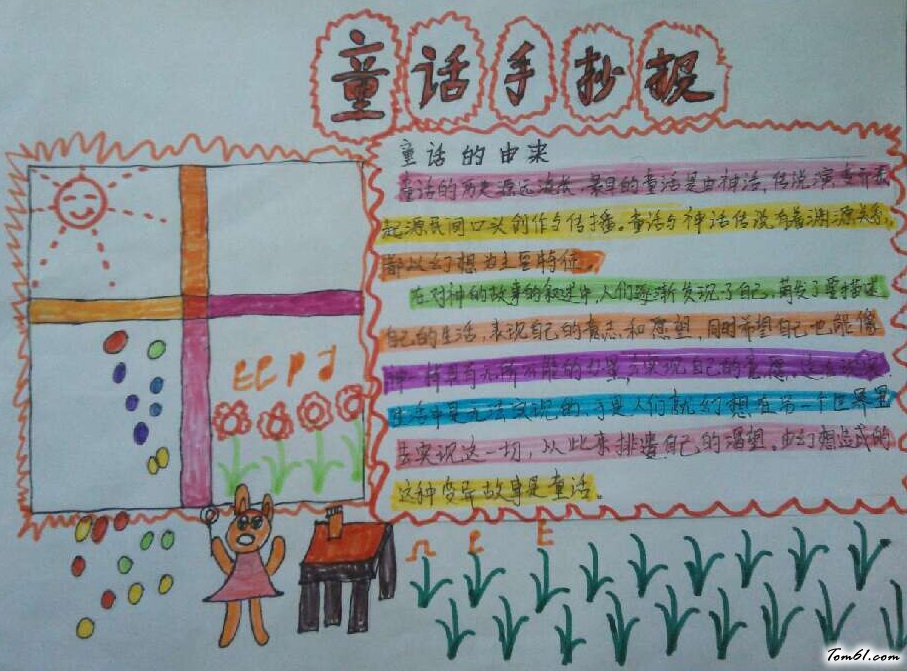 童话手抄报
童话的由来
童话的历史源远流长,最早的童话是由神话,传说演变而来
起源民间口头创作与传播。童话与神话传说有着渊源关系,
都以幻想为主要特征。
在对神的故事的叙述中,人们逐渐发现了自己,萌发了要描述
自己的生活,表现自己的意志和愿望,同时希望自己也能像
神一样具有无所不能的力量,去实现自己的意愿。这在现实
生活中是无法实现的,于是人们就幻想在另一个世界里
去实现这一切,从此来排遣自己的渴望。由幻想造成的
这种变异故事是童话。
Tom61.com